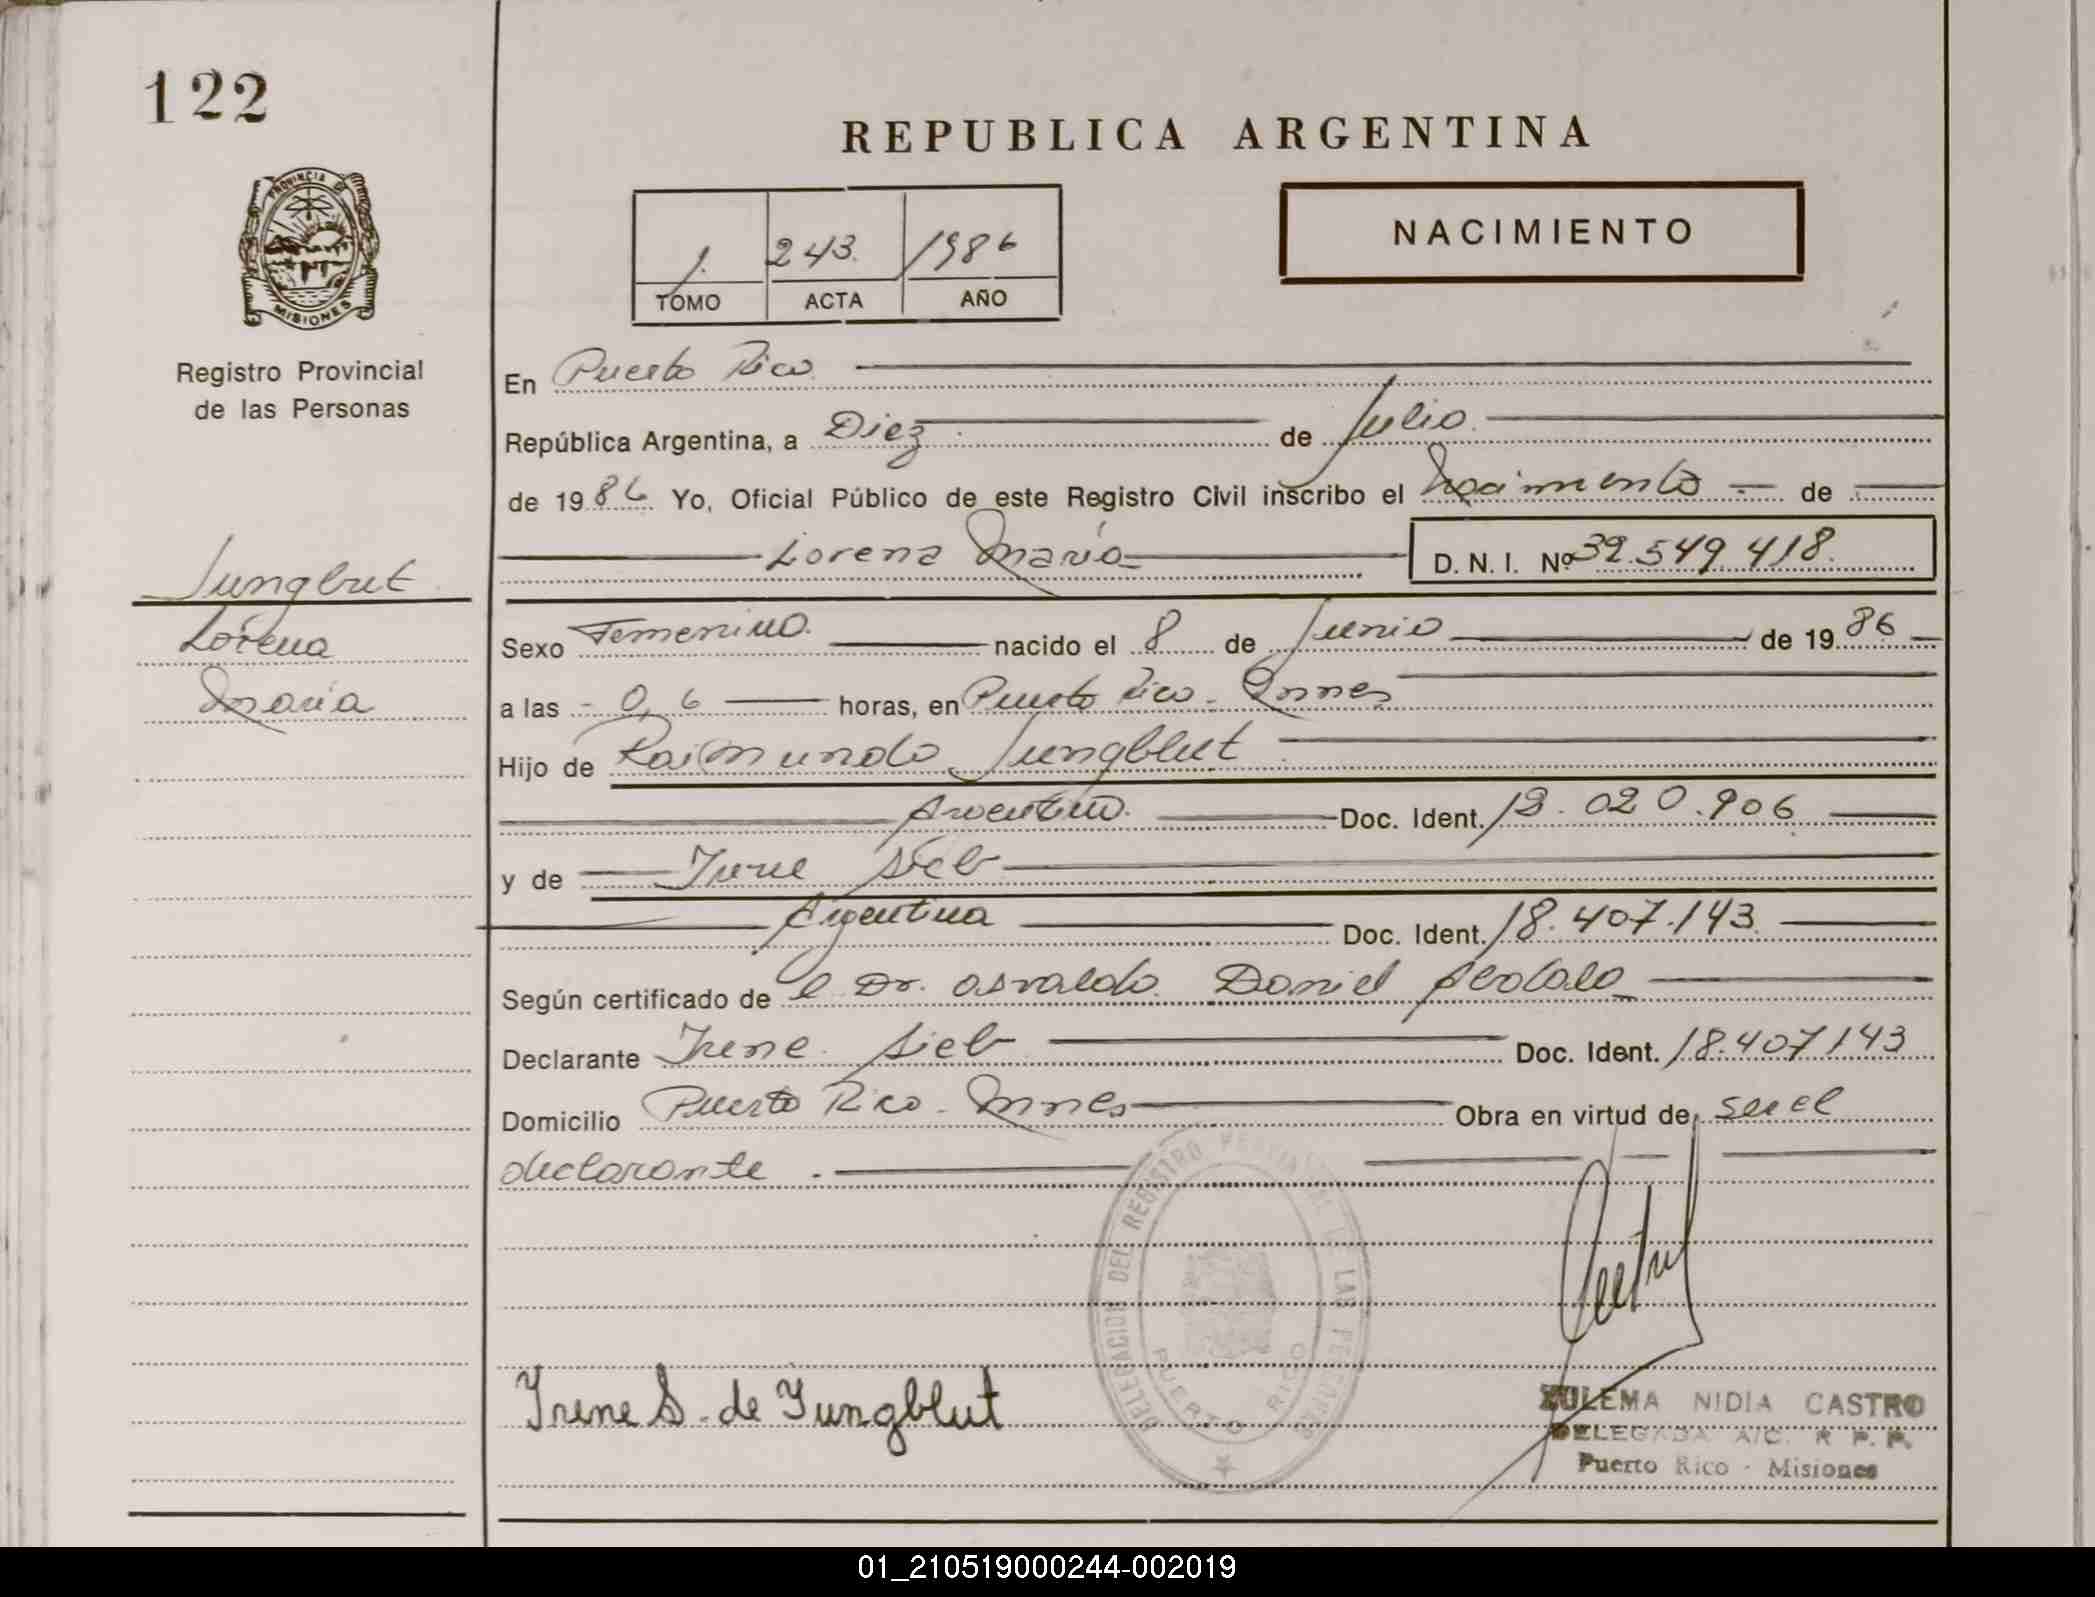 122
REPUBLICA ARGENTINA
PROVINCIA DE
MISIONES
Registro Provincial
de las Personas
1. 243. 1986
TOMO ACTA AÑO
NACIMIENTO
En Puerto Rico
República Argentina, a Diez de Julio
de 1986 Yo, Oficial Público de este Registro Civil inscribo el Nacimiento de
Lorena María D. N. I. Nº 32.549.418.
Jungblut
Lorena
María
Sexo Femenino. nacido el 8 de Junio de 1986
a las 0,6 horas, en Puerto Rico - Mnes
Hijo de Raimundo Jungblut
Argentino. Doc. Ident. 18.020.906
y de Irene Sieb
Argentina Doc. Ident. 18.407.143
Según certificado de el Dr. Osvaldo Daniel
Declarante Irene Sieb Doc. Ident. 18.407143
Domicilio Puerto Rico - Mnes Obra en virtud de ser el
declarante.
DELEGACION DEL REGISTRO PROVINCIAL DE LAS PERSONAS
PUERTO RICO
Irene S. de Jungblut
ZULEMA NIDIA CASTRO
DELEGADA A/C. R. P. P.
Puerto Rico - Misiones
01_210519000244-002019